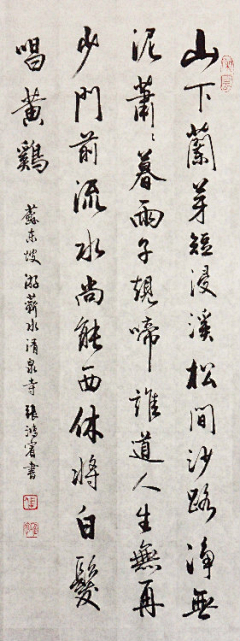 山下蘭芽短浸溪松間沙路淨無
泥蕭〻暮雨子規啼誰道人生無再
少門前流水尚能西休將白髮
唱黄鷄
蘇東坡游蘄水清泉寺 張鴻書